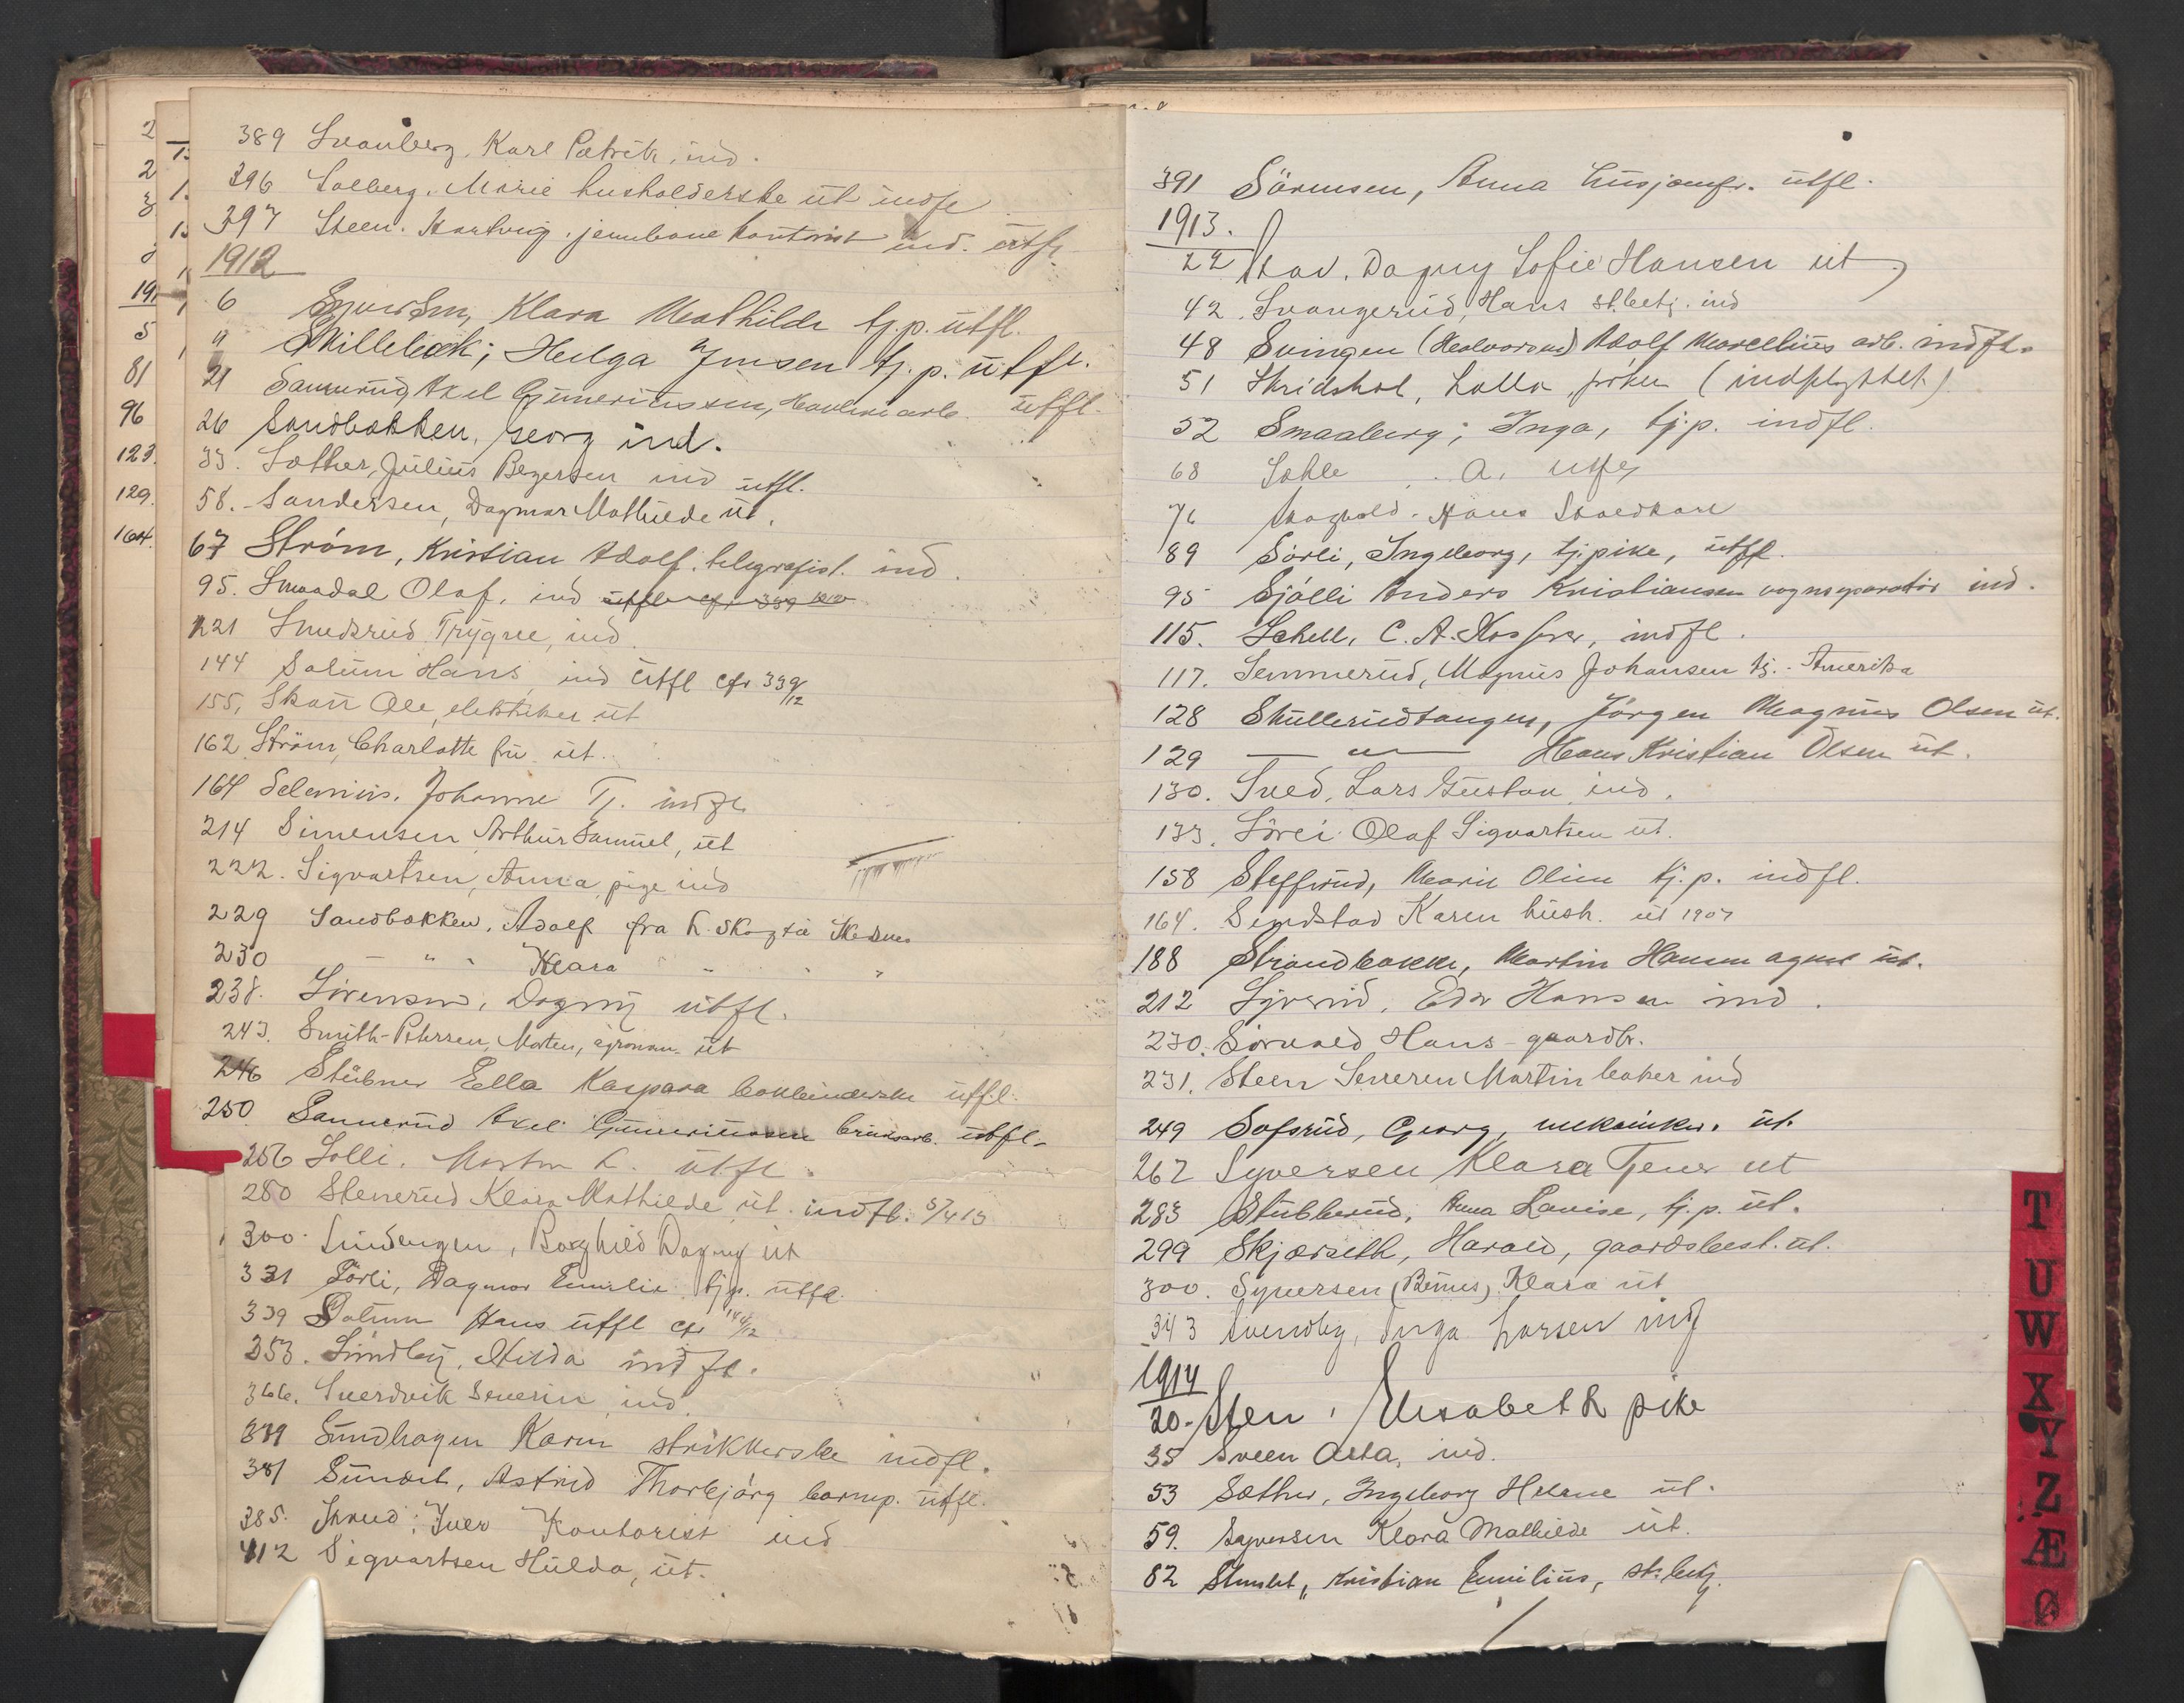 389 Svanberg, Karl Patrik, ind.
396 Solberg, Marie husholderske üt indfl
397 Steen. Hartvig. jernbane kontorist ind. ütfl.
1912
6 Klara Mathilde tj.p. ütfl.
9 Skillebæk; Helga Jensen tj. p. ütfl.
21 Sannerüd, Axel Günerüssen, ütfl.
26 Sandbakken, Georg ind.
33. Sæther, Jülius Begersen ind ütfl.
58. Sandersen, Dagmar Mathilde üt.
67 Strøm, Kristian Adolf. telegrafist. ind.
95. Smaadal Olaf, ind ütfl cfr 339
121 Smedsrüd Trygve, ind
144 Solüm Hans, ind ütfl cfr 339/12
155, Skau Ole, elektriker üt
162 Strøm, Charlotte frü üt.
164 Johanne Tj. indfl.
214 Simensen Arthur Samüel, üt
222. Sigvartsen, Anna, pige ind
229 Sandbakken, Adolf fra L. Skog til Skedsmo
230 — " — Klara " " "
238. Sörensen, Dagny ütfl.
243. Smith-Petersen, Morten, agronom. üt
246 Stübner Ella Kaspara bokbinderske ütfl.
250. Sannerüd Axel Güneriüssen brüksarb. ütfl.
256 Solli. Morten L. ütfl.
280 Stenerüd Klara Mathilde, üt. indfl. 5/4 13
300. Borghild Dagny üt
331 Sörli, Dagmar Emilie tj.p. ütfl.
339 Solüm Hans ütfl cfr 144/12
353. Sündby, Hilda indfl.
366. Sverdvik Severin, ind.
379 Sündhagen Karen strikkerske indfl.
381 Astrid Thorbjörg barnep. ütfl.
385. Skrud; Iver Kontorist ind
412 Sigvartsen Hülda, üt.
391 Sörensen, Anna hüsjomfr. ütfl.
1913.
22 Dagny Sofie Hansen üt
42. Svangerüd, Hans st.betj. ind
48 Svingen (Halvorsrud) Adolf Marcelius arb. indfl.
51 Skridshol, Lalla, frøken (indflyttet.)
52 Smaaberg; Inga, tj.p. indfl.
68 A. utfl
76 Skogvold. Hans
89 Sörli, Ingeborg, tj.pike, ütfl.
95 Sjölli Anders Kristiansen vognreparatør ind.
115. Schell, C. A. indfl.
117. Semmerüd, Magnüs Johansen tj. - Amerika
128 Skullerüdtangen, Jörgen Magnus Olsen üt.
129 — " — Hans Kristian Olsen üt.
130. Sved, Lars Güstav, ind.
133. Olaf Sigvartsen üt.
158 Marie Oline tj.p. indfl.
164. Karen hüsh. üt 1907
188 Strandbakke, Martin Hansen agent üt.
212 Hansen ind.
230. Sörvald Hans - gaardbr.
231. Steen Severen Martin baker ind
249 Sofsrüd, Georg, mekaniker. üt.
262 Syversen Klara Tjener ut
283 Stübberüd, Anna Lovise, tj.p. üt.
299 Skjærseth, Harald, gaardsbest. üt.
300. Syversen (Bünes), Klara üt
343 Svendby, Inga Larsen ind
1914
20. Sten, Elisabeth pike
35 Sveen Asta, ind.
53 Sæther, Ingeborg Helene üt.
59. Syversen Klara Mathilde üt.
82 Kristian Emilius, st.betj.
2
2
3
191
5
81
96
123.
129.
164.
T
U
W
X
Y
Z
Æ
Ø